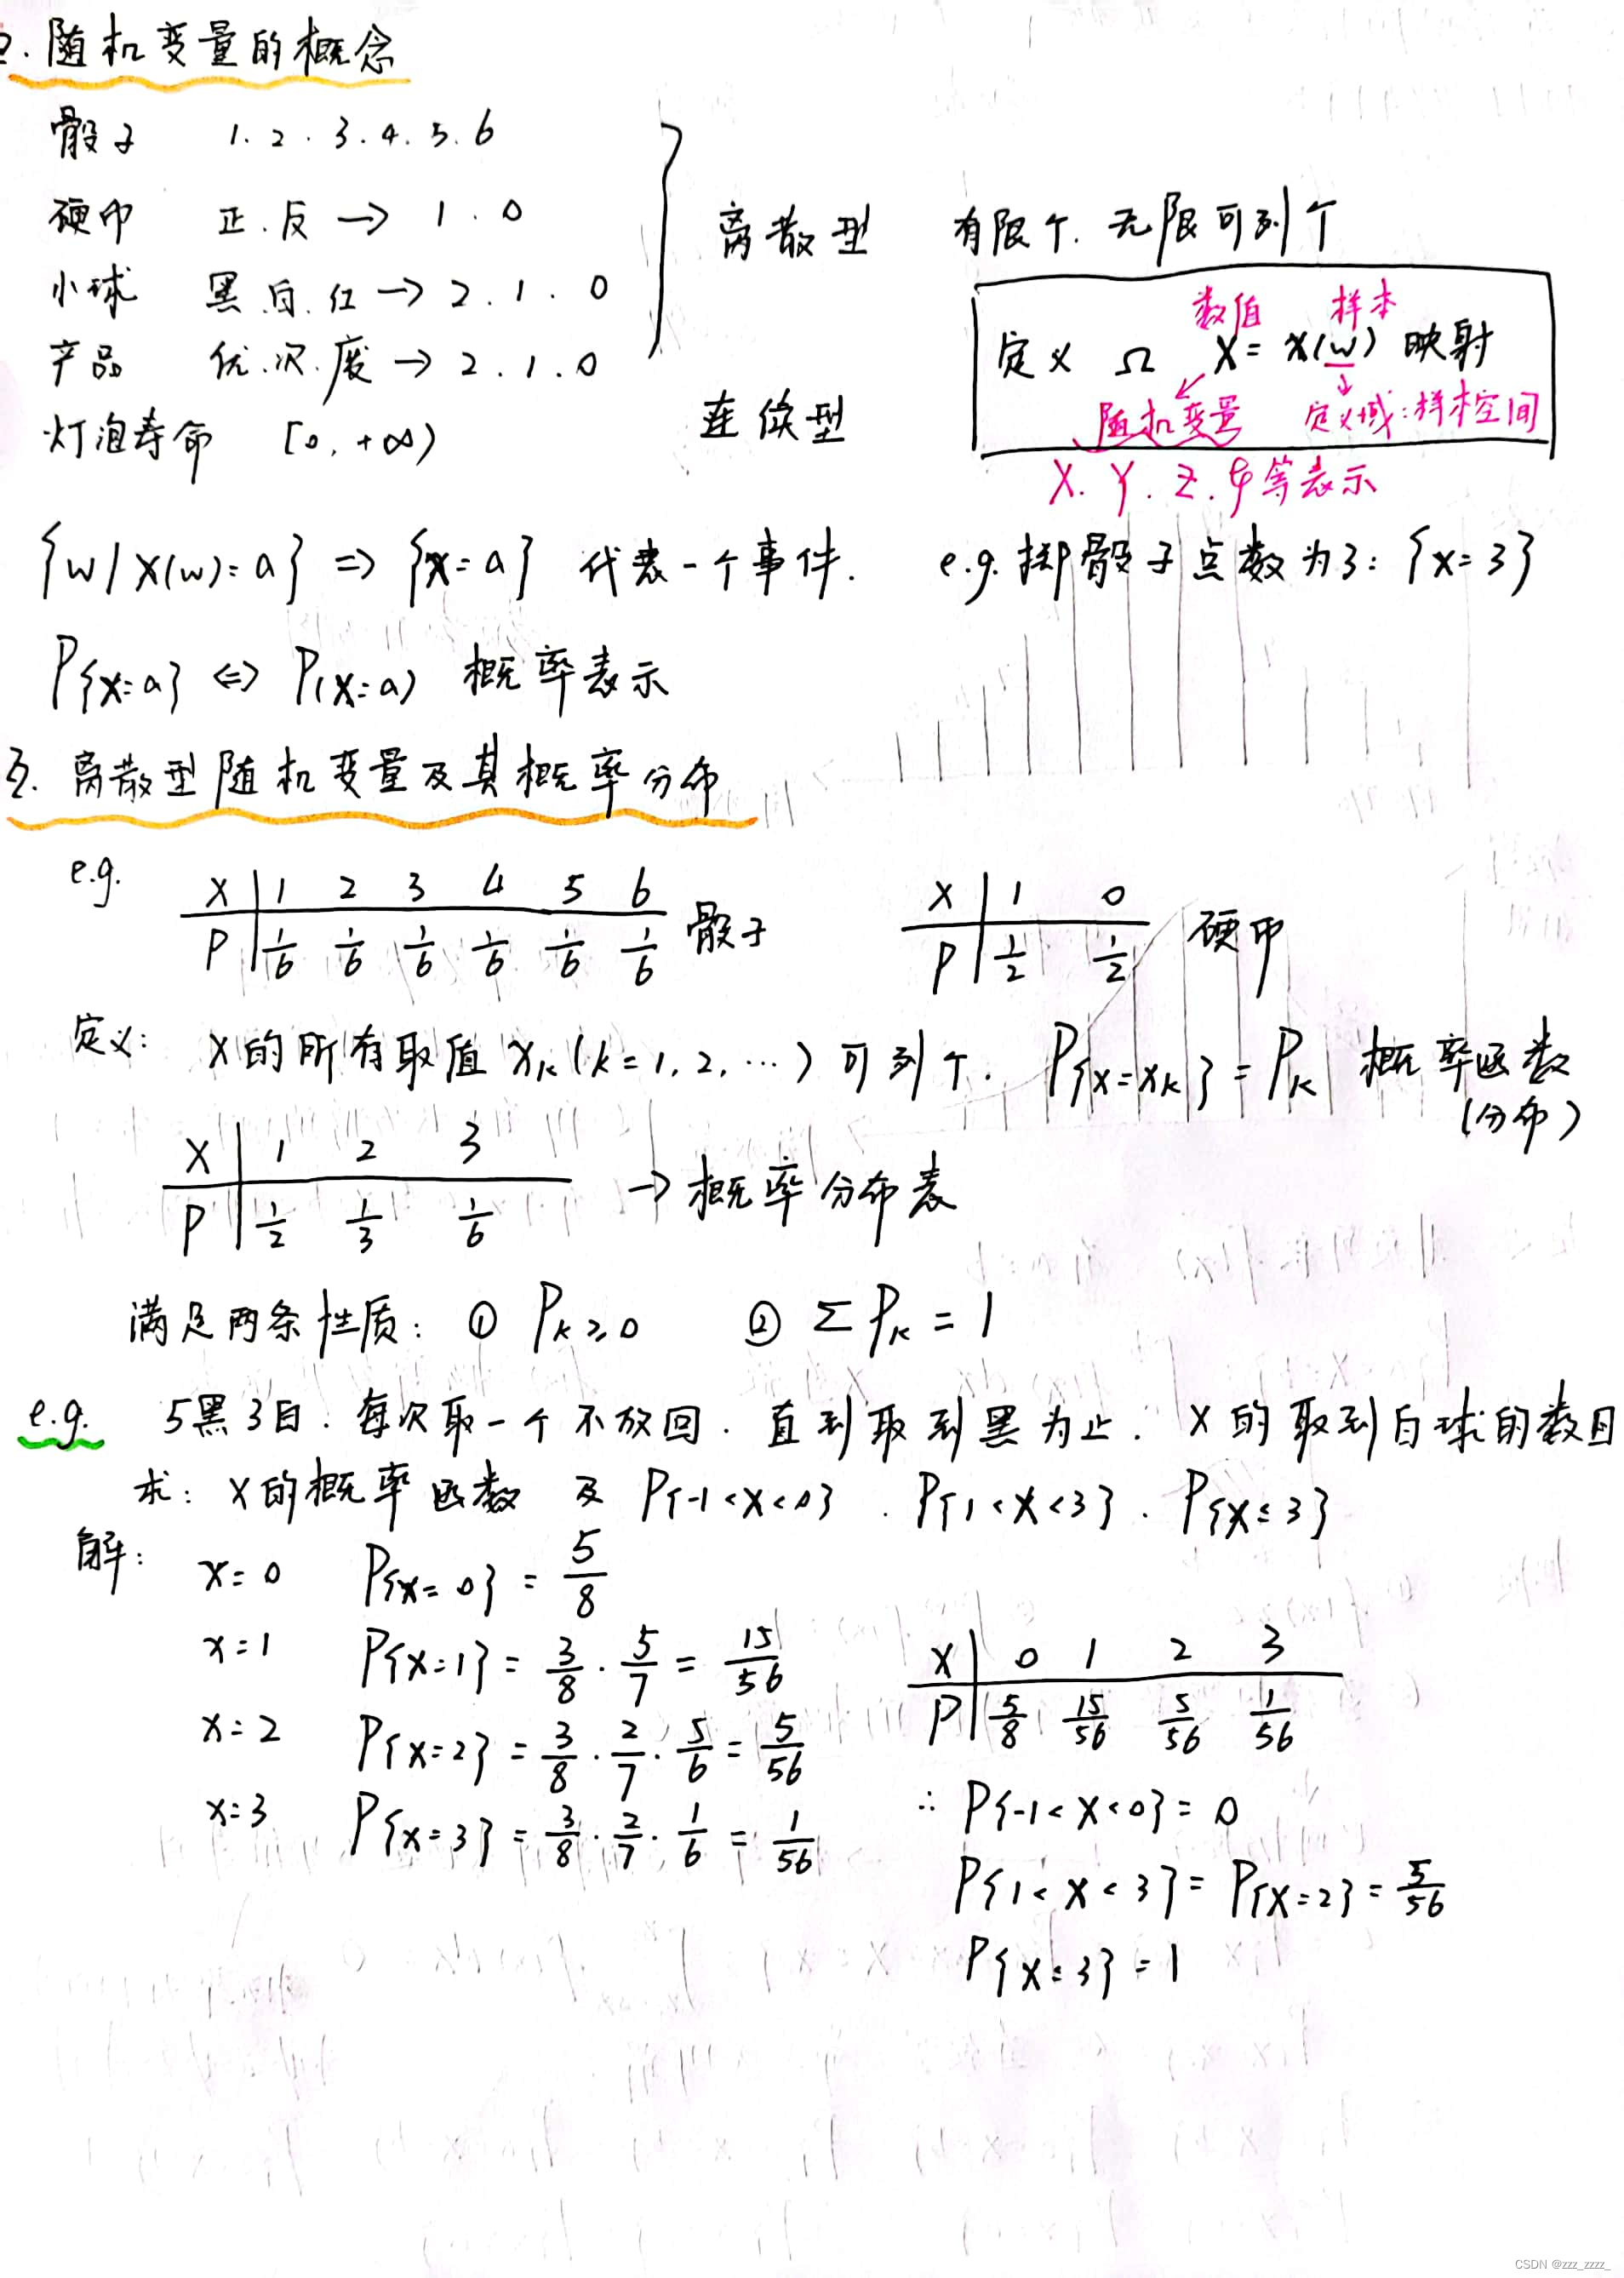 2. 随机变量的概念
骰子 1. 2. 3. 4. 5. 6
硬币 正. 反 → 1. 0
小球 黑. 白. 红 → 2. 1. 0
产品 优. 次. 废 → 2. 1. 0
离散型 有限个. 无限可列个
灯泡寿命 [0, +∞)
连续型
数值 样本
定义 Ω X = X(w) 映射
随机变量 定义域: 样本空间
X. Y. Z. 等表示
{w | X(w) = a} ⇒ {X = a} 代表一个事件. e.g. 掷骰子点数为3: {X = 3}
P{X=a} ⇔ P(X=a) 概率表示
3. 离散型随机变量及其概率分布
e.g.
X 1 2 3 4 5 6
P 1/6 1/6 1/6 1/6 1/6 1/6 骰子
X 1 0
P 1/2 1/2 硬币
定义: X的所有取值 x_k (k = 1, 2, …) 可列个. P{X = x_k} = P_k 概率函数
(分布)
X 1 2 3
P 1/2 1/3 1/6
→ 概率分布表
满足两条性质: ① P_k ≥ 0 ② Σ P_k = 1
e.g. 5黑3白. 每次取一个不放回. 直到取到黑为止. X的取到白球的数目
求: X的概率函数 及 P{-1 < X < 0} . P{1 < X < 3} . P{X ≤ 3}
解:
x = 0 P{X = 0} = 5/8
x = 1 P{X = 1} = 3/8 · 5/7 = 15/56
x = 2 P{X = 2} = 3/8 · 2/7 · 5/6 = 5/56
x = 3 P{X = 3} = 3/8 · 2/7 · 1/6 = 1/56
X 0 1 2 3
P 5/8 15/56 5/56 1/56
∴ P{-1 < X < 0} = 0
P{1 < X < 3} = P{X = 2} = 5/56
P{X ≤ 3} = 1
CSDN @zzz_zzzz_